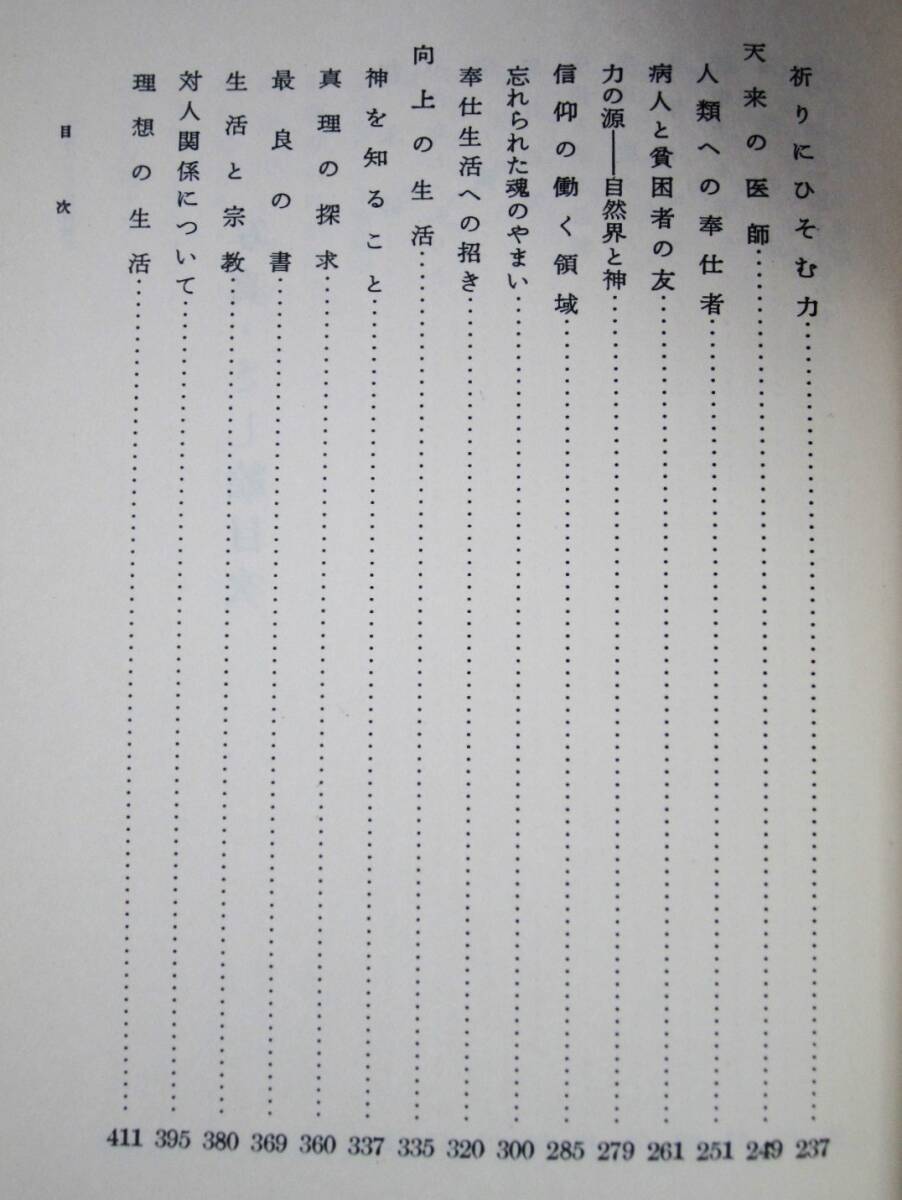 祈りにひそむ力……237
天来の医師……249
人類への奉仕者……251
病人と貧困者の友……261
力の源――自然界と神……279
信仰の働く領域……285
忘れられた魂のやまい……300
奉仕生活への招き……320
向上の生活……335
神を知ること……337
真理の探求……360
最良の書……369
生活と宗教……380
対人関係について……395
理想の生活……411
目次